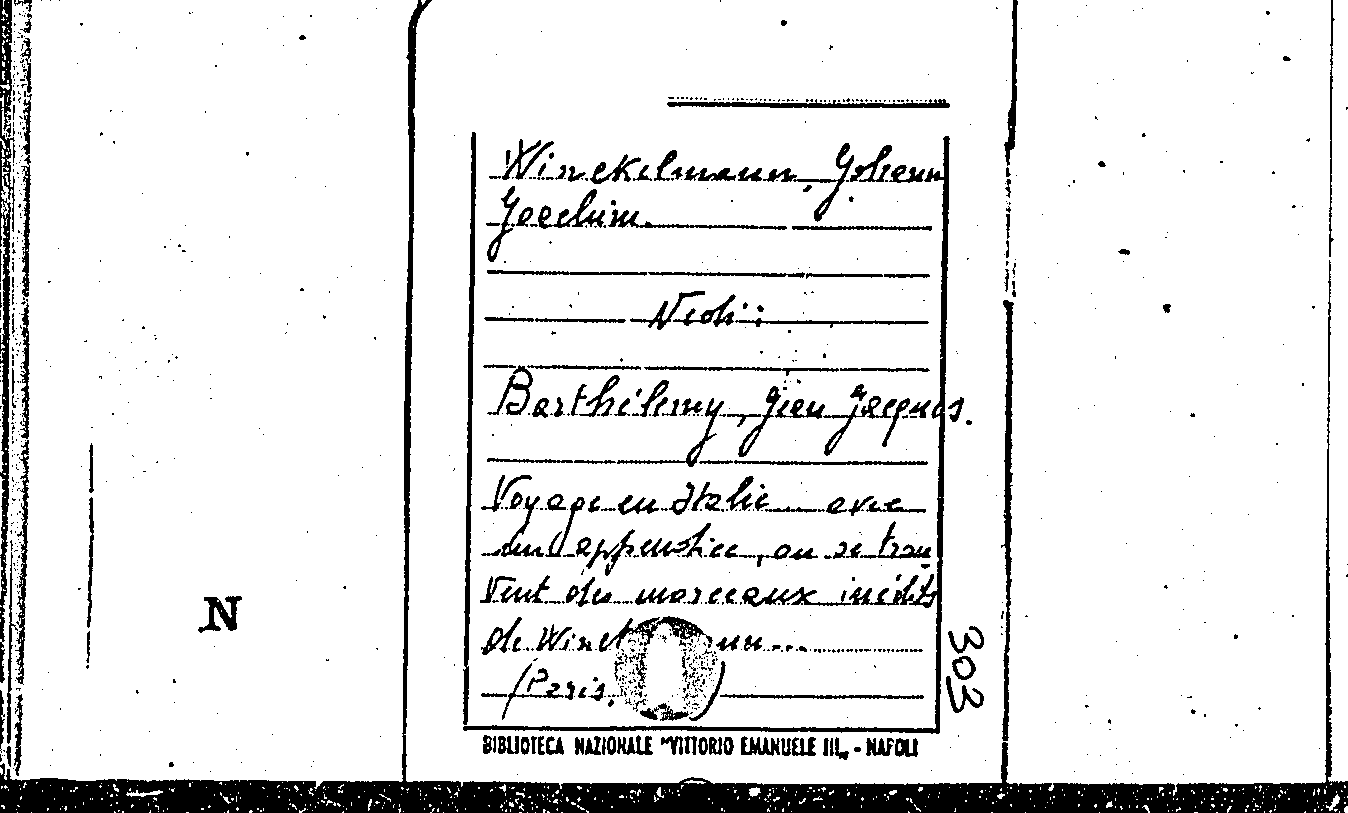 Winckelmann, Johann
Joachim.
Vedi:
Barthélemy, Jean Jacques.
Voyage en Italie ... avec
un appendice, ou se trou
vent des morceaux inédits
de Winck nn...
(Paris, )
303
N
BIBLIOTECA NAZIONALE "VITTORIO EMANUELE III„ - NAPOLI